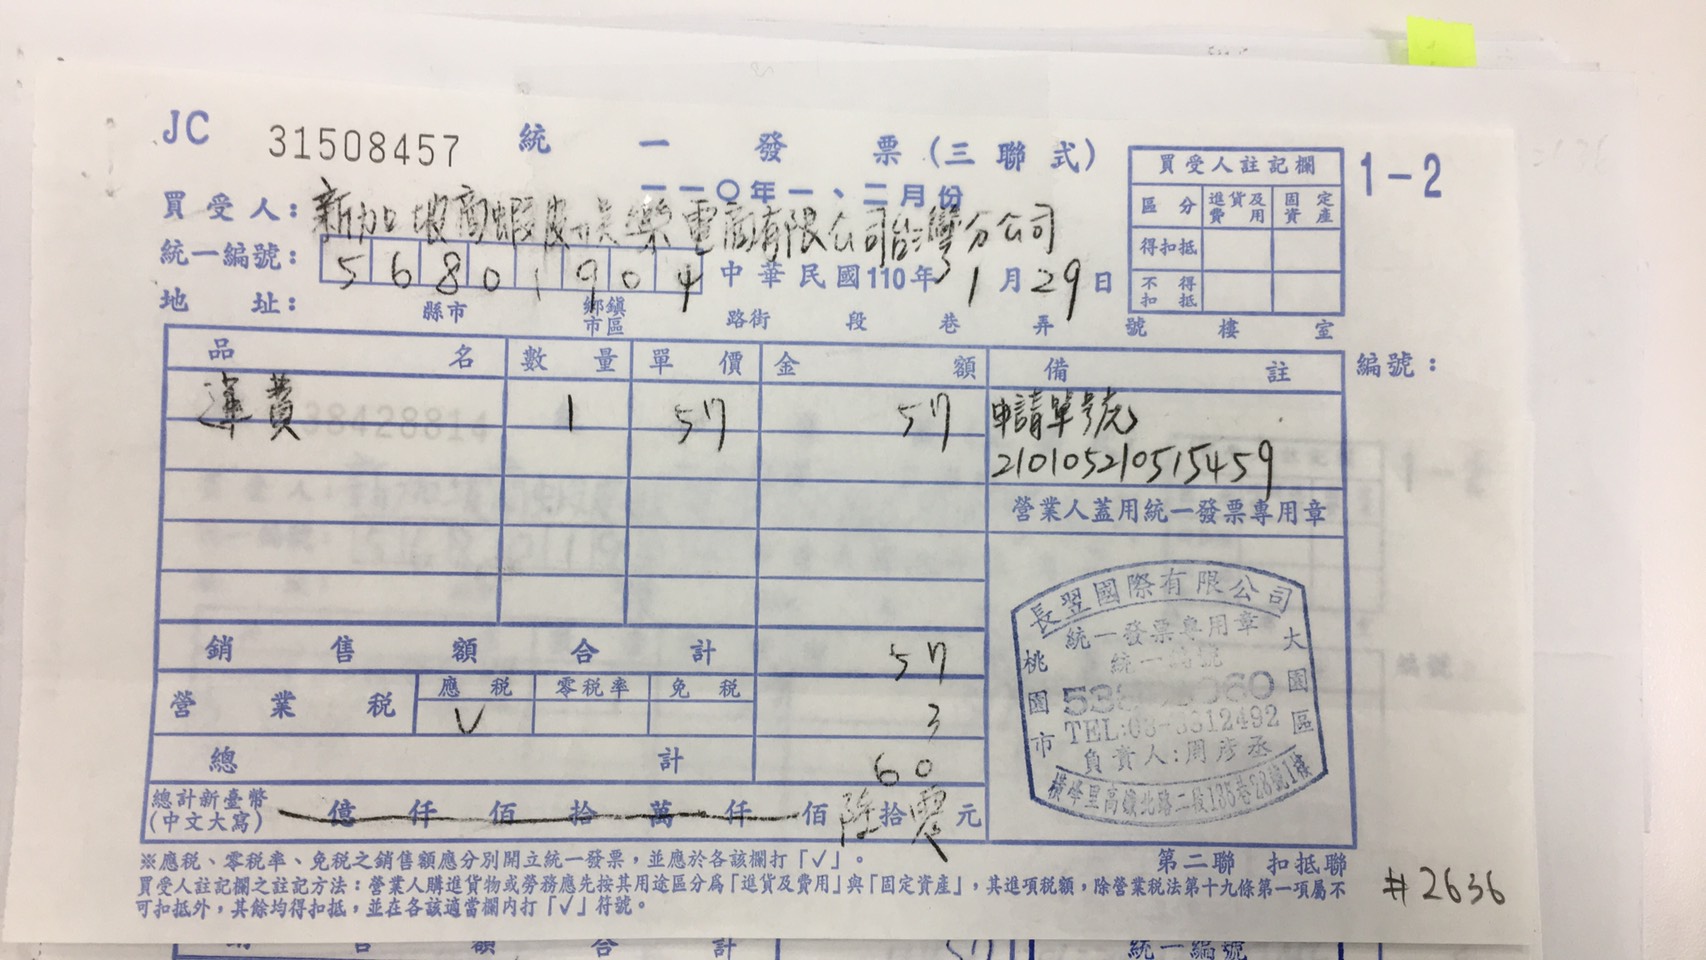 JC 31508457 統一發票(三聯式)
一一〇年一、二月份
買受人註記欄
區分 進貨及費用 固定資產
得扣抵
不得扣抵
1-2
買受人: 新加坡商蝦皮娛樂電商有限公司台灣分公司
統一編號: 56801904 中華民國110年1月29日
地址: 縣市 鄉鎮市區 路街 段 巷 弄 號 樓 室
品名 數量 單價 金額 備註 編號:
運費 1 57 57 申請單號
210105210515459
營業人蓋用統一發票專用章
銷售額合計 57
營業稅 應稅 零稅率 免稅
V 3
總計 60
總計新臺幣(中文大寫) 億仟佰拾萬仟佰陸拾零元
長翌國際有限公司
統一發票專用章
TEL:03-3312492
負責人:周彥丞
桃園市
大園區
※應稅、零稅率、免稅之銷售額應分別開立統一發票,並應於各該欄打「✓」。
第二聯 扣抵聯
買受人註記欄之註記方法:營業人購進貨物或勞務應先按其用途區分為「進貨及費用」與「固定資產」,其進項稅額,除營業稅法第十九條第一項屬不
可扣抵外,其餘均得扣抵,並在各該適當欄內打「✓」符號。
#2636
銷售額合計 57 統一編號